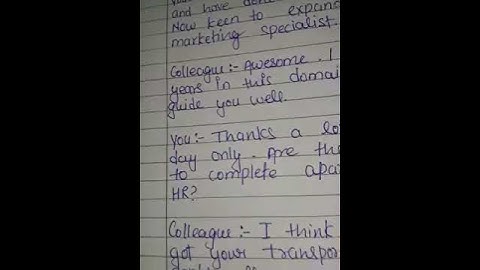 and have don
Now keen to expan
marketing specialist.
Colleague:- Awesome. I
years in this domai
guide you well.
You:- Thanks a lo
day only. Are the
to complete apa
HR?
Colleague:- I think
got your transpor